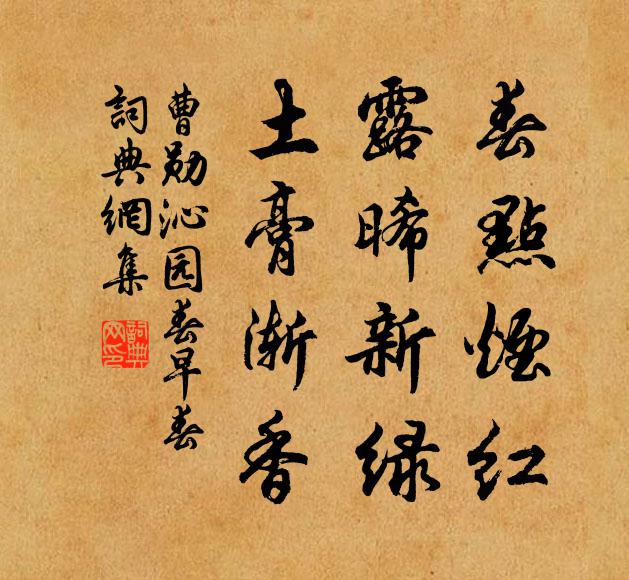 春點煙紅
露晞新绿
土膏漸香
曹勛沁园春早春
詞典網集
詞典網印